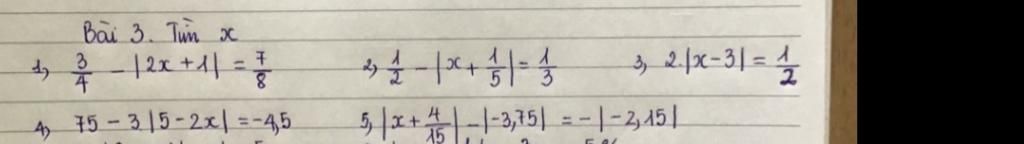 Bài 3. Tìm x
1, 3/4 - |2x + 1| = 7/8 2, 1/2 - |x + 1/5| = 1/3 3, 2.|x - 3| = 1/2
4, 75 - 3|5 - 2x| = -4,5 5, |x + 4/15| - |-3,75| = -|-2,15|